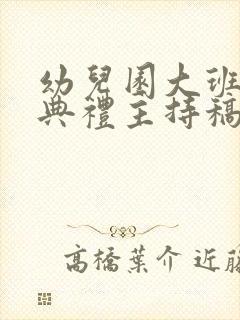 幼兒園大班
典禮主持稿
高橋葉介 近藤